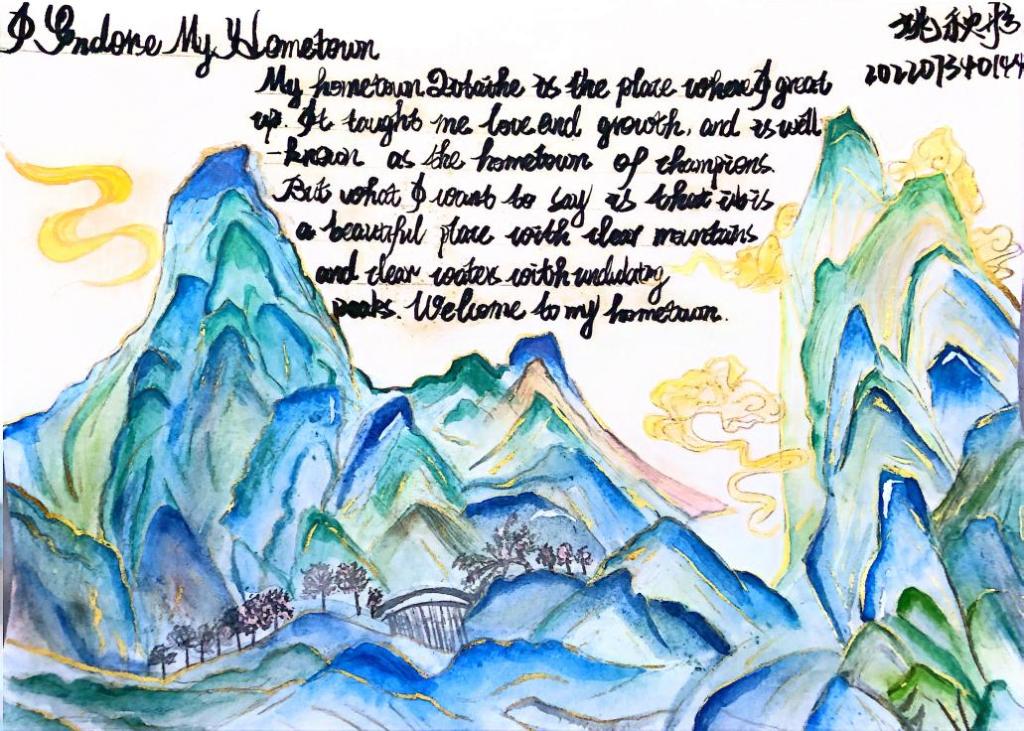 I Endorse My Hometown
秧形
202207340144
My hometown is the place where I great
up. It taught me love and growth, and is well
-known as the hometown of champions.
But what I want to say is that it is
a beautiful place with clear mountains
and clear waters with undulating
peaks. Welcome to my hometown.